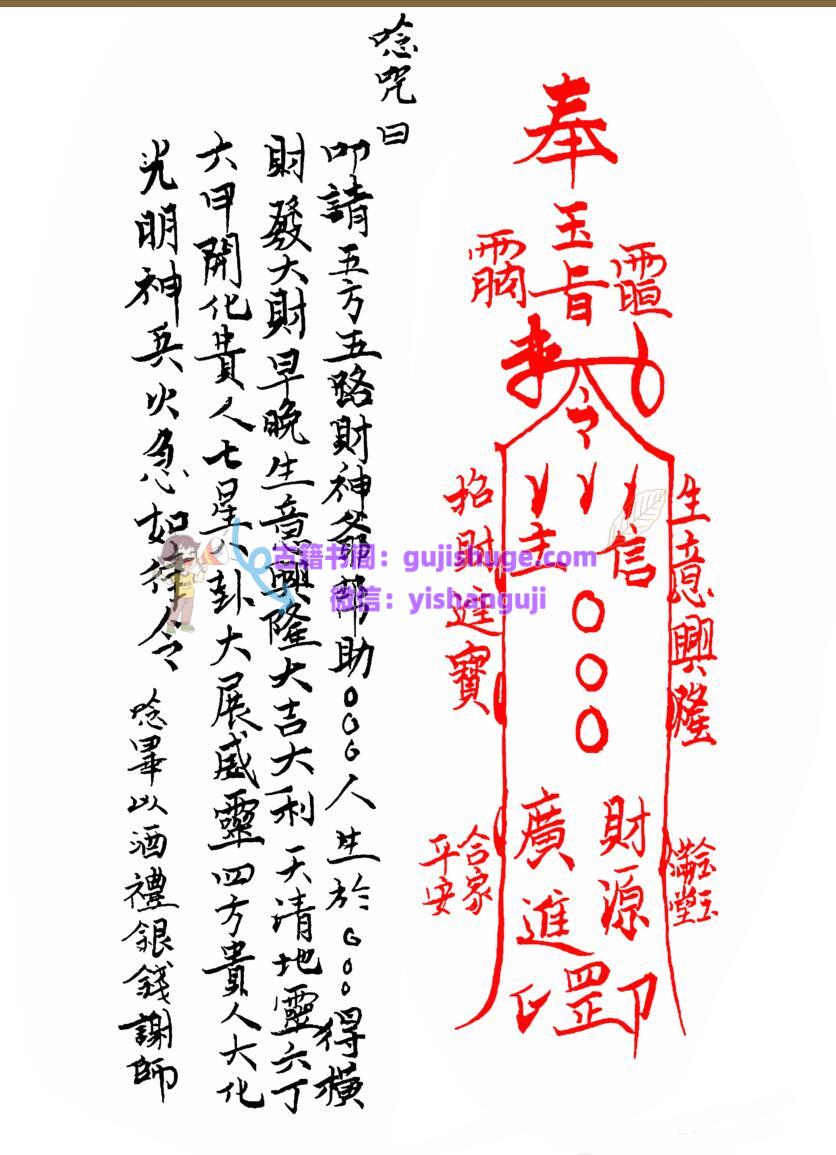 奉
玉旨
令
信
主
○○○
財源
廣進
罡
印
生意興隆
招財進寶
金玉
滿堂
合家
平安
唸咒曰
叩請五方五路財神爺幫助○○○人生於○○○得橫
財發大財早晚生意興隆大吉大利天清地靈六丁
六甲開化貴人七星八卦大展威靈四方貴人大化
光明神兵火急如律令
唸畢以酒禮銀錢謝師
古籍书阁：gujishuge.com
微信：yishanguji